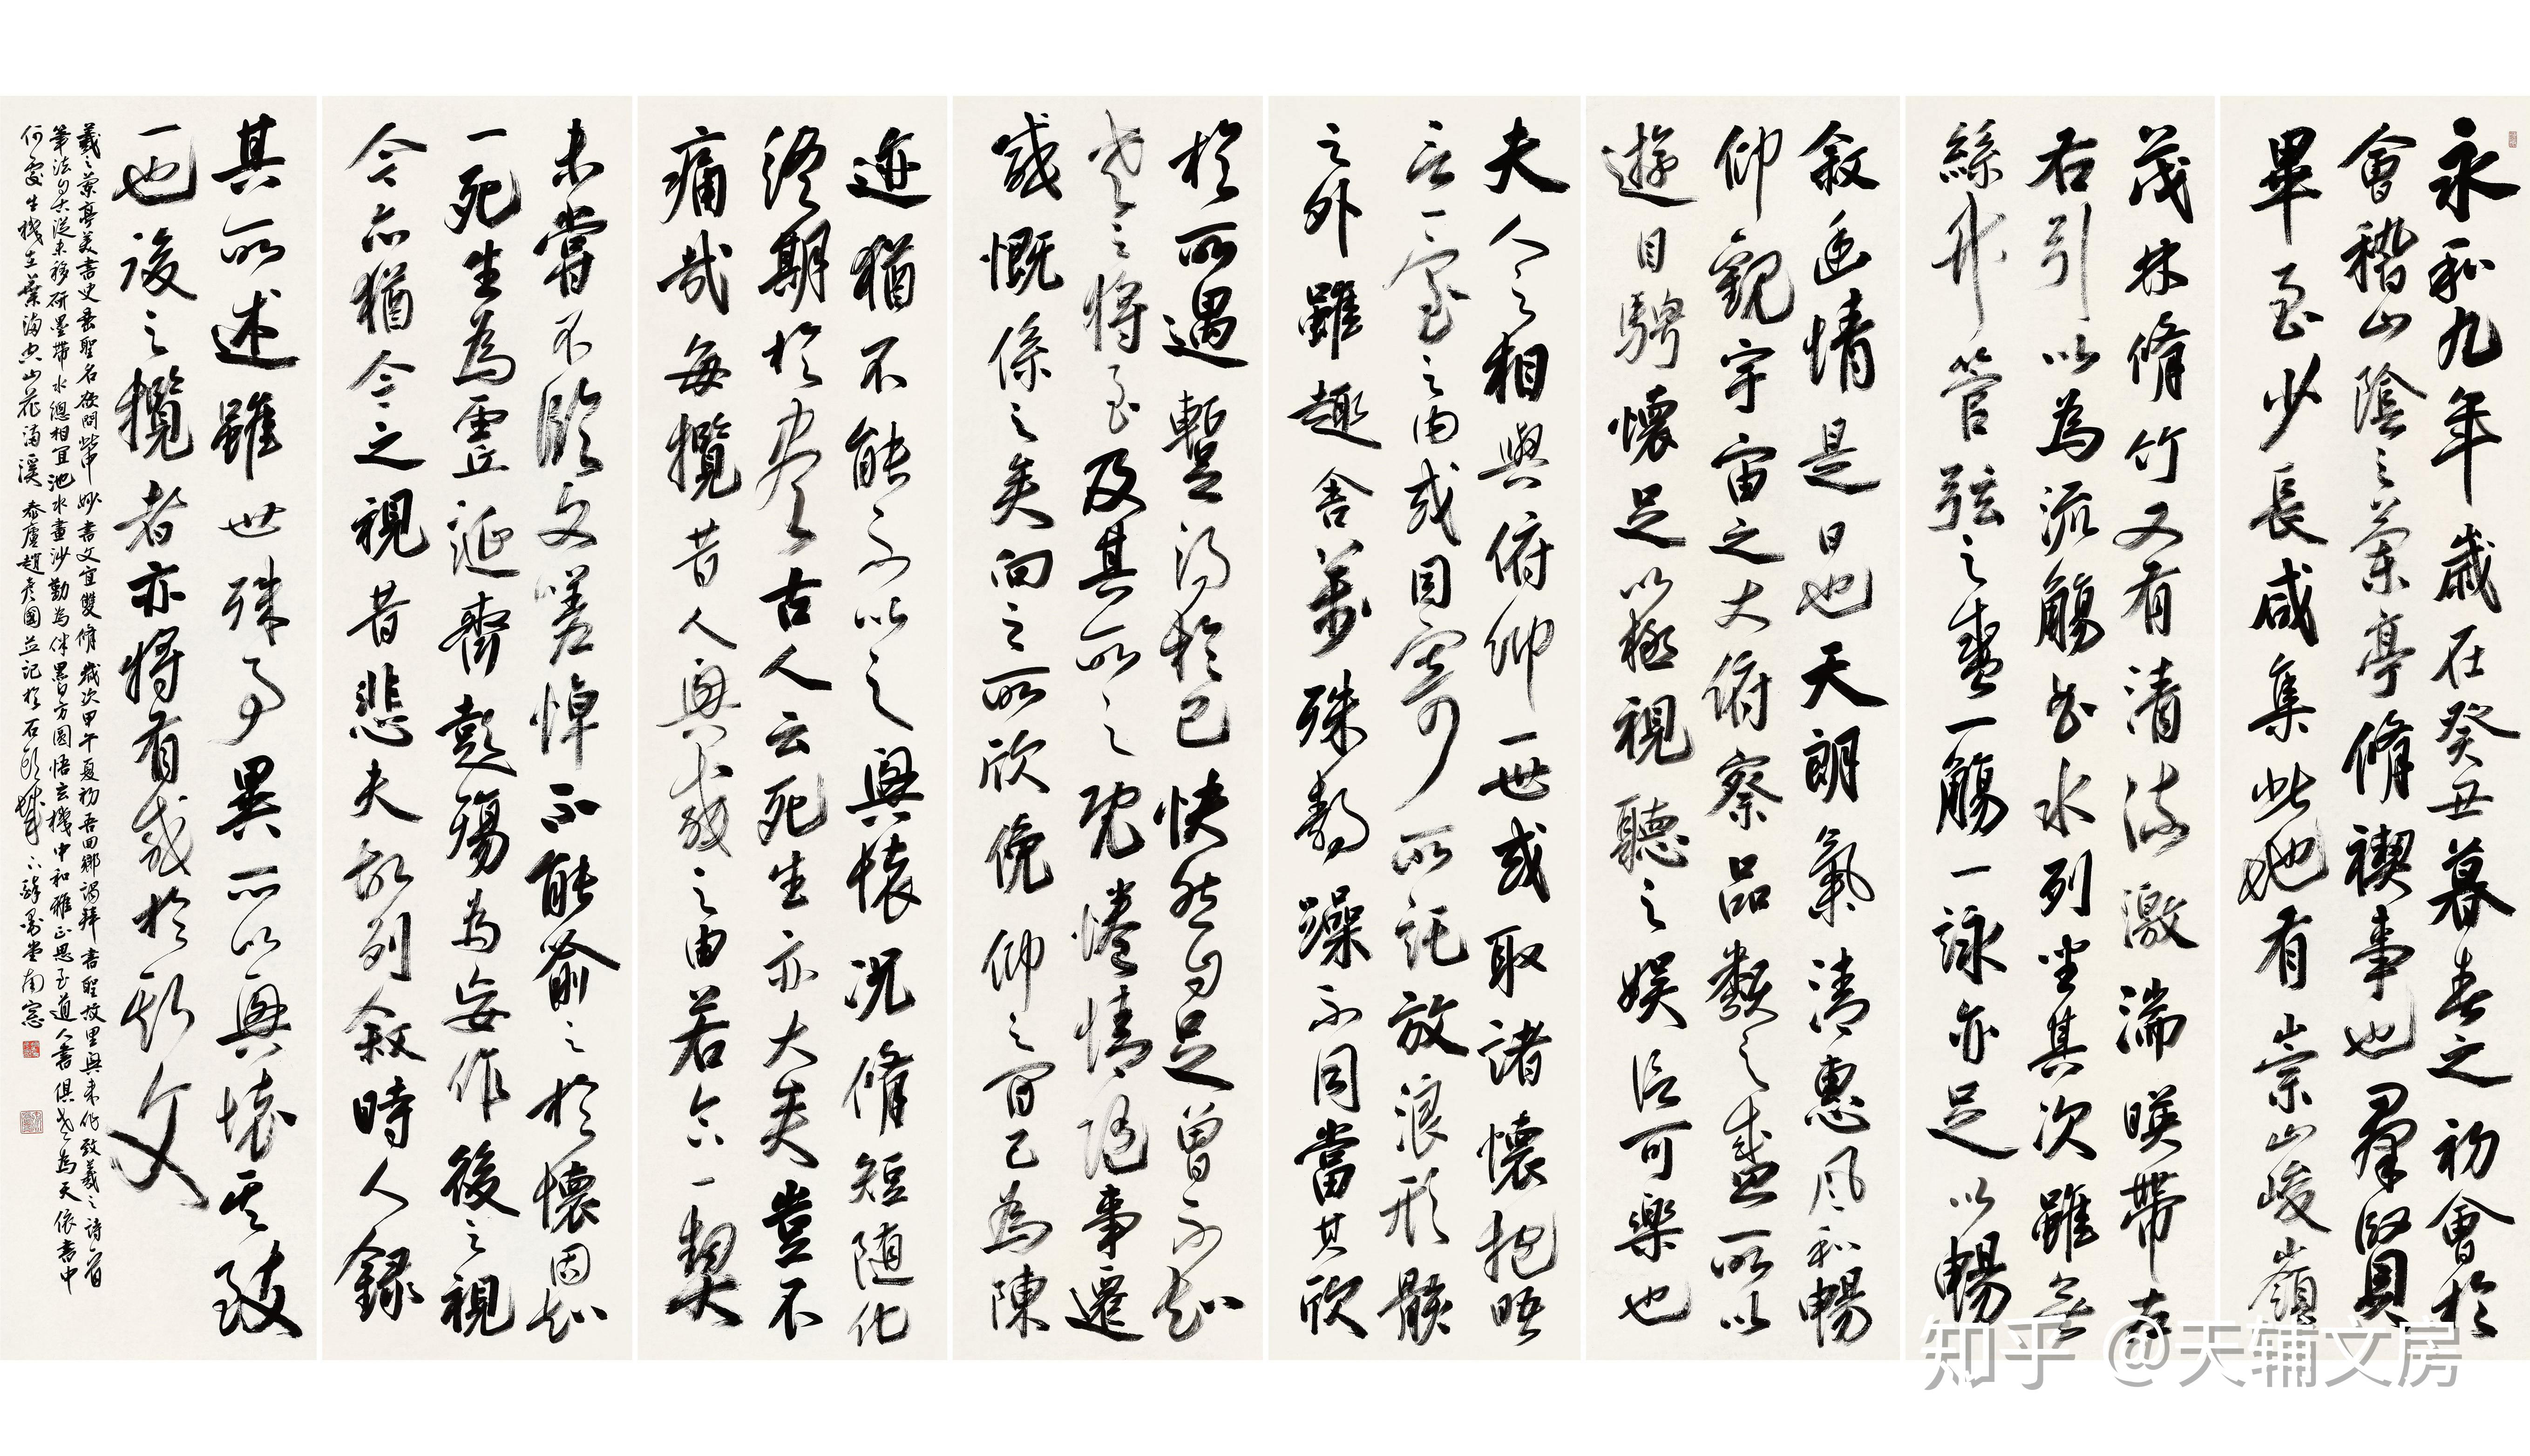 永和九年歲在癸丑暮春之初會於
會稽山陰之蘭亭脩禊事也羣賢
畢至少長咸集此地有崇山峻嶺
茂林脩竹又有清流激湍暎帶左
右引以為流觴曲水列坐其次雖無
絲竹管弦之盛一觴一詠亦足以暢
敘幽情是日也天朗氣清惠風和暢
仰觀宇宙之大俯察品類之盛所以
遊目騁懷足以極視聽之娛信可樂也
夫人之相與俯仰一世或取諸懷抱晤
言一室之內或因寄所託放浪形骸
之外雖趣舍萬殊靜躁不同當其欣
於所遇暫得於己快然自足曾不知
老之將至及其所之既惓情隨事遷
感慨係之矣向之所欣俛仰之間已為陳
迹猶不能不以之興懷況脩短隨化
終期於盡古人云死生亦大矣豈不
痛哉每攬昔人興感之由若合一契
未嘗不臨文嗟悼不能喻之於懷固知
一死生為虛誕齊彭殤為妄作後之視
今亦猶今之視昔悲夫故列敘時人錄
其所述雖世殊事異所以興懷其致
一也後之攬者亦將有感於斯文
羲之蘭亭美書史垂聖名欲問此中妙書文宜雙脩歲次甲午夏初吾回鄉謁拜書聖故里與來作致羲之詩一首
筆法自古從未移研墨帶水總相宜池水畫沙勤為伴墨白方圓悟玄機中和雅正思至道人書俱老為天依書中
何處生機在葉海空山花滿溪 泰廬趙彥國並記於石頭城下醉墨堂南窗
知乎 @天辅文房